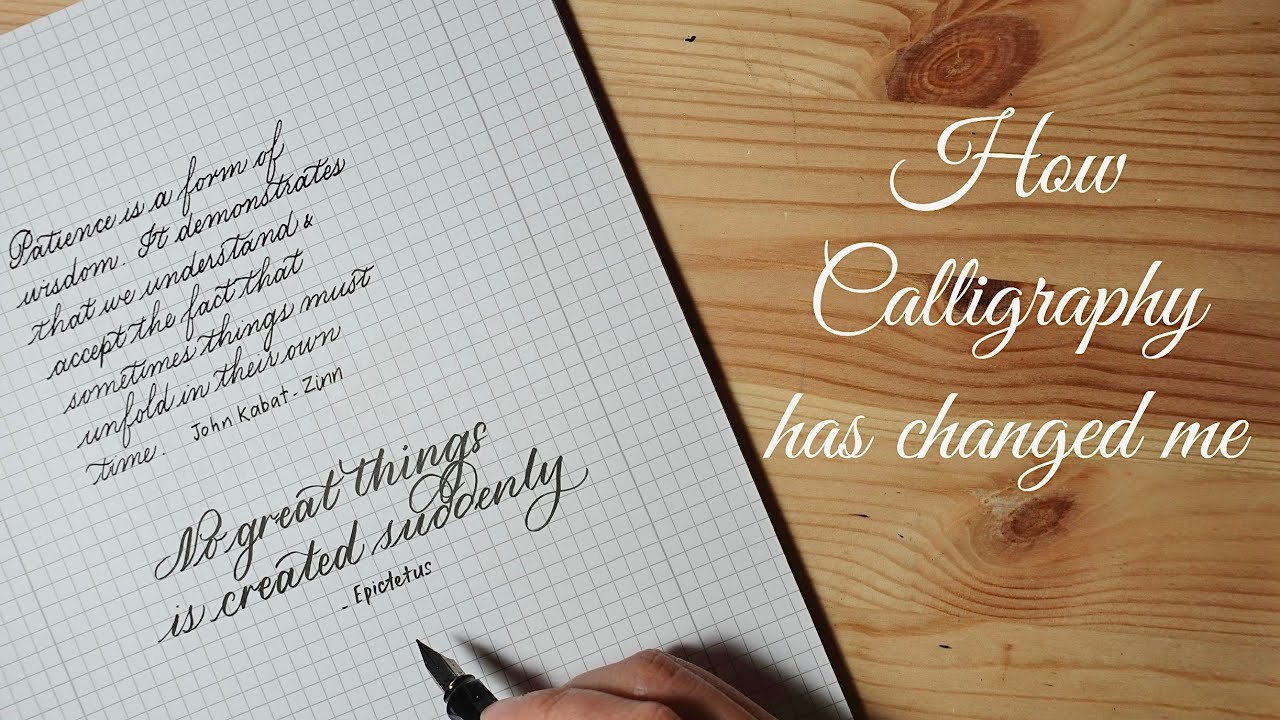 Patience is a form of
wisdom. It demonstrates
that we understand &
accept the fact that
sometimes things must
unfold in their own
time John Kabat-Zinn
No great things
is created suddenly
- Epictetus
How
Calligraphy
has changed me